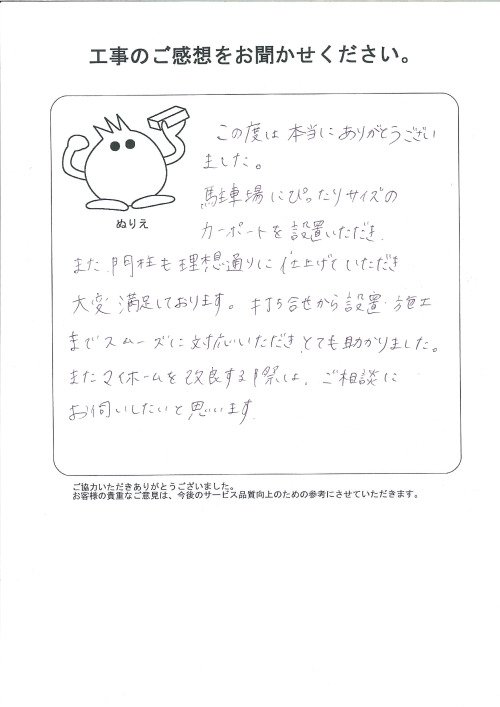 工事のご感想をお聞かせください。
この度は本当にありがとうござい
ました。
駐車場にぴったりサイズの
カーポートを設置いただき、
ぬりえ
また、門柱も理想通りに仕上げていただき
大変満足しております。打ち合せから設置・施工
までスムーズに対応いただき、とても助かりました。
またマイホームを改良する際は、ご相談に
お伺いしたいと思います。
ご協力いただきありがとうございました。
お客様の貴重なご意見は、今後のサービス品質向上のための参考にさせていただきます。